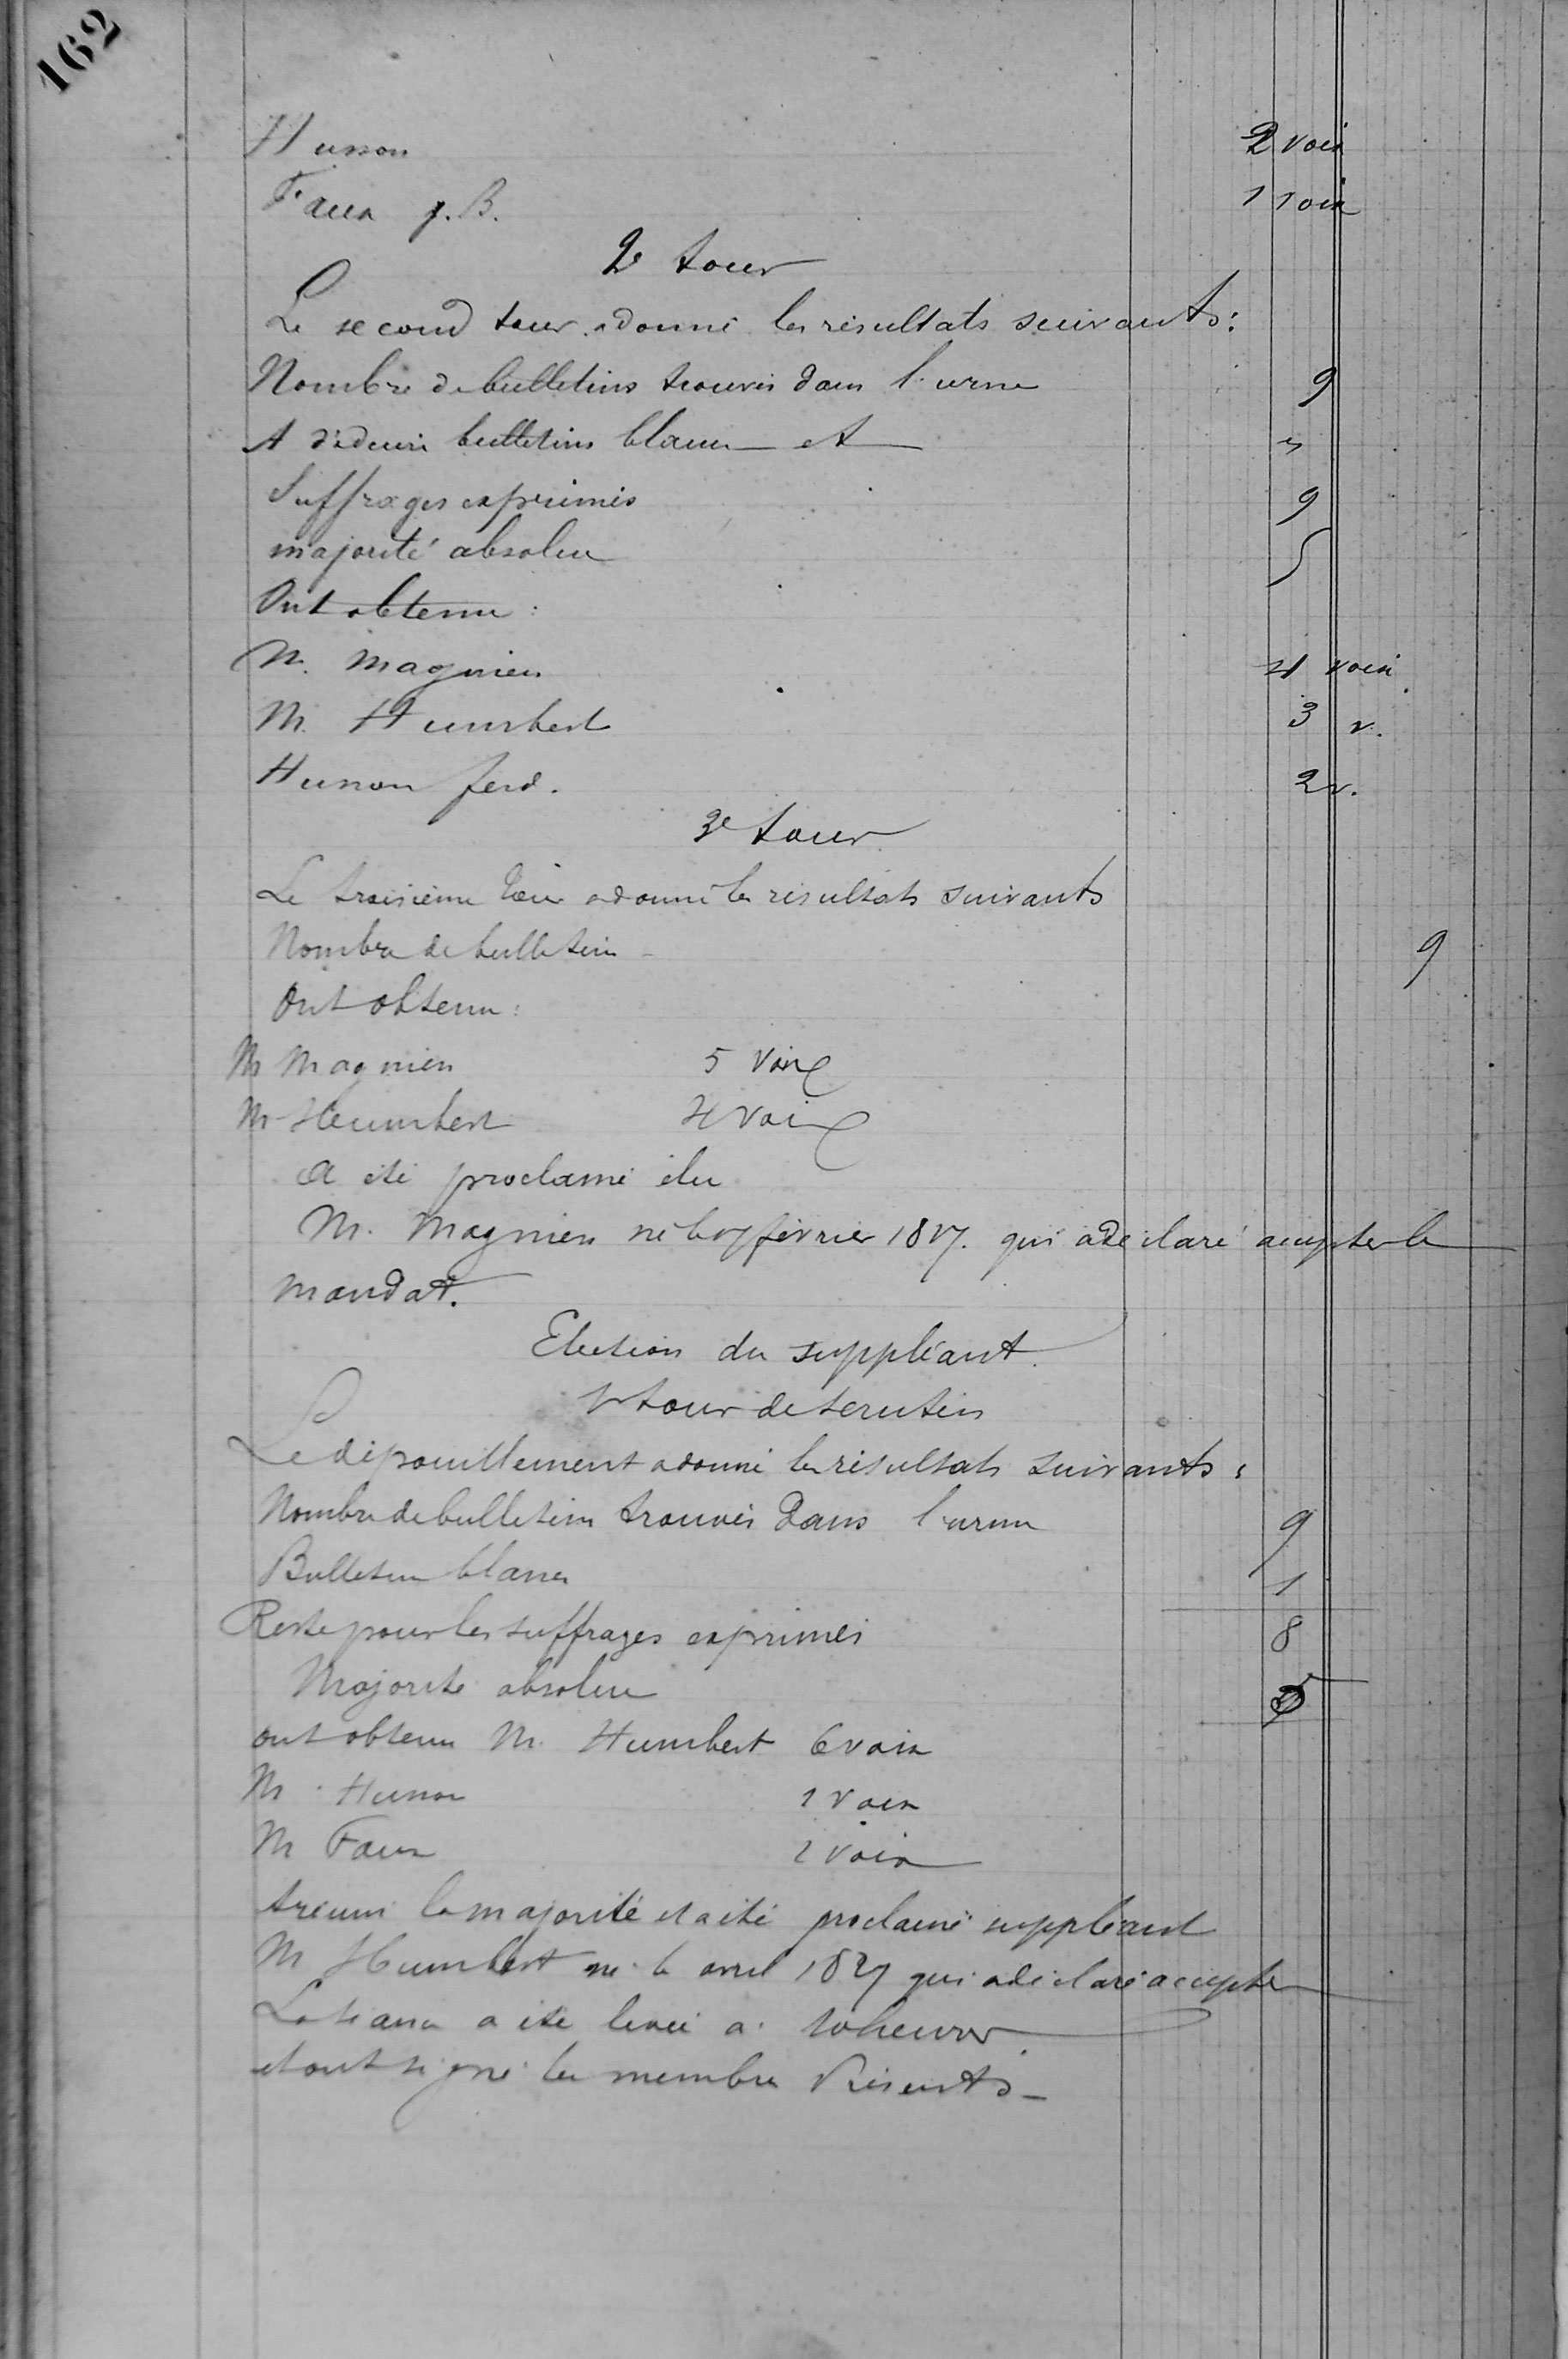 162
Husson 2 voix
Faux J. B. 1 voix
2e tour
Le second tour a donné les résultats suivants:
Nombre de bulletins trouvés dans l'urne 9
A déduire bulletins blancs et "
Suffrages exprimés 9
majorité absolue 5
Ont obtenu:
M. Magnien 4 voix
M. Humbert 3 v.
Husson ferd. 2 v.
3e tour
Le troisième tour a donné les résultats suivants
Nombre de bulletins 9
Ont obtenu:
M Magnien 5 voix
M Humbert 4 voix
A été proclamé élu
M. Magnien né le février qui a déclaré accepter le
mandat.
Election du suppléant.
1er tour de scrutin
Le dépouillement a donné les résultats suivants:
Nombre de bulletins trouvés dans l'urne 9
Bulletin blanc 1
Reste pour les suffrages exprimés 8
Majorité absolue 5
ont obtenu M. Humbert 6 voix
M. Husson 1 voix
M Faux 1 voix
réuni la majorité et a été proclamé suppléant
M Humbert né le avril 1827 qui a déclaré accepter
La séance a été levée à heures
et ont signé les membres Présents